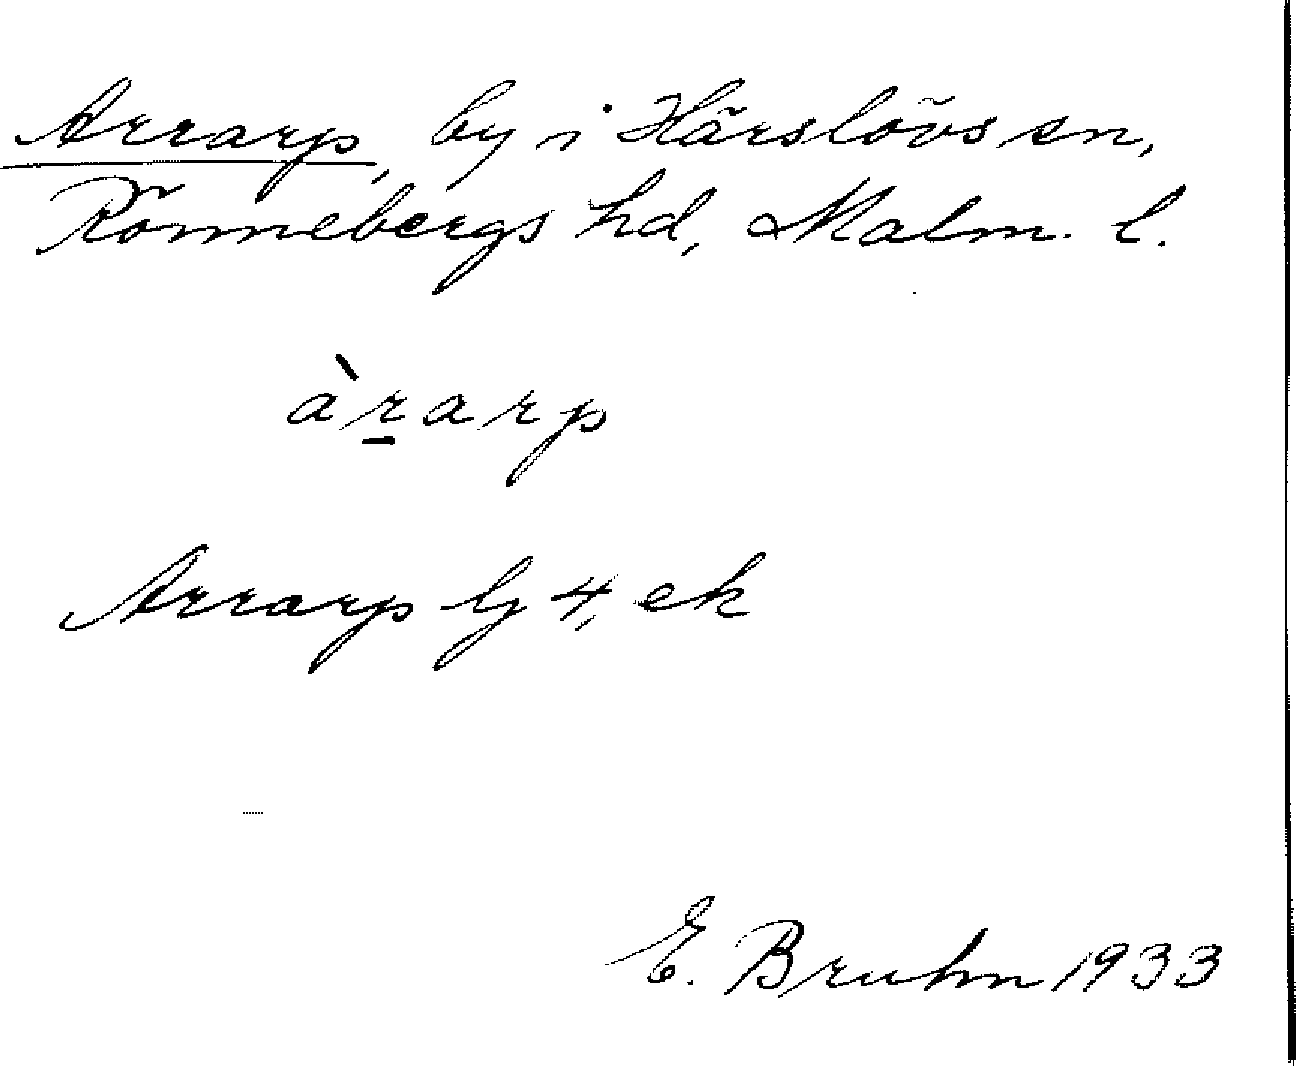 Arrarp, by i Härslövs sn,
Rönnebergs hd, Malm. l.
àr̲arp
Arrarp G 4, ek
E. Bruhn 1933